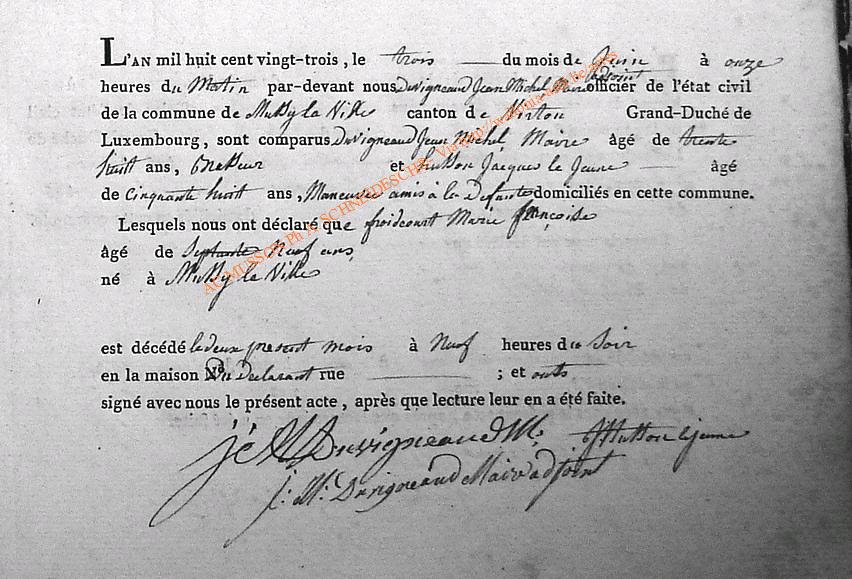 L'AN mil huit cent vingt-trois, le trois du mois de Juin à onze
heures du Matin par-devant nous Duvigneaud Jean Michel Maire adjoint officier de l'état civil
de la commune de Mussy la Ville canton de Virton Grand-Duché de
Luxembourg, sont comparus Duvigneaud Jean Michel, Maire âgé de trente
huit ans, et Husson Jacques le Jeune âgé
de Cinquante huit ans, Maneuvre amis à la Defunte domiciliés en cette commune.
Lesquels nous ont déclaré que froidcourt Marie françoise
âgé de Septante Neuf ans
né à Mussy la Ville
est décédé le deux present mois à Neuf heures du Soir
en la maison du Declarant rue ; et onts
signé avec nous le présent acte, après que lecture leur en a été faite.
Duvigneaud M. Husson le jeune
j: M: Duvigneaud Maire adjoint